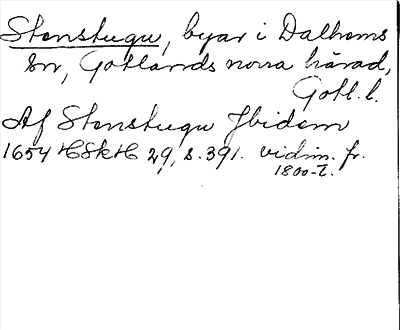 Stenstugu, byar i Dalhems
sn, Gotlands norra härad,
Gotl. l.
Af Stenstugu Ibidem
1654 HSkH 29, s. 391. vidim. fr.
1800-t.